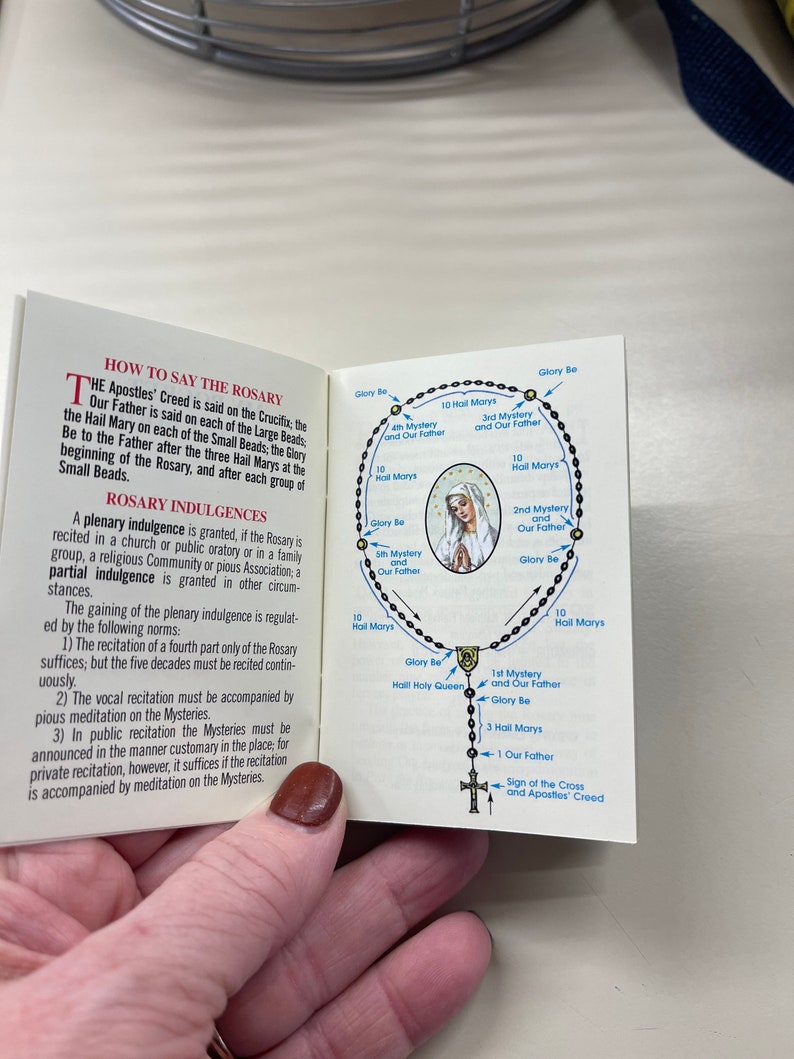 HOW TO SAY THE ROSARY
THE Apostles' Creed is said on the Crucifix; the
Our Father is said on each of the Large Beads;
the Hail Mary on each of the Small Beads; the Glory
Be to the Father after the three Hail Marys at the
beginning of the Rosary, and after each group of
Small Beads.
ROSARY INDULGENCES
A plenary indulgence is granted, if the Rosary is
recited in a church or public oratory or in a family
group, a religious Community or pious Association; a
partial indulgence is granted in other circum-
stances.
The gaining of the plenary indulgence is regulat-
ed by the following norms:
1) The recitation of a fourth part only of the Rosary
suffices; but the five decades must be recited contin-
uously.
2) The vocal recitation must be accompanied by
pious meditation on the Mysteries.
3) In public recitation the Mysteries must be
announced in the manner customary in the place; for
private recitation, however, it suffices if the recitation
is accompanied by meditation on the Mysteries.
Glory Be
Glory Be
10 Hail Marys
4th Mystery
and Our Father
3rd Mystery
and Our Father
10
Hail Marys
10
Hail Marys
2nd Mystery
and
Our Father
Glory Be
5th Mystery
and
Our Father
Glory Be
10
Hail Marys
10
Hail Marys
Glory Be
Hail! Holy Queen
1st Mystery
and Our Father
Glory Be
3 Hail Marys
1 Our Father
Sign of the Cross
and Apostles' Creed